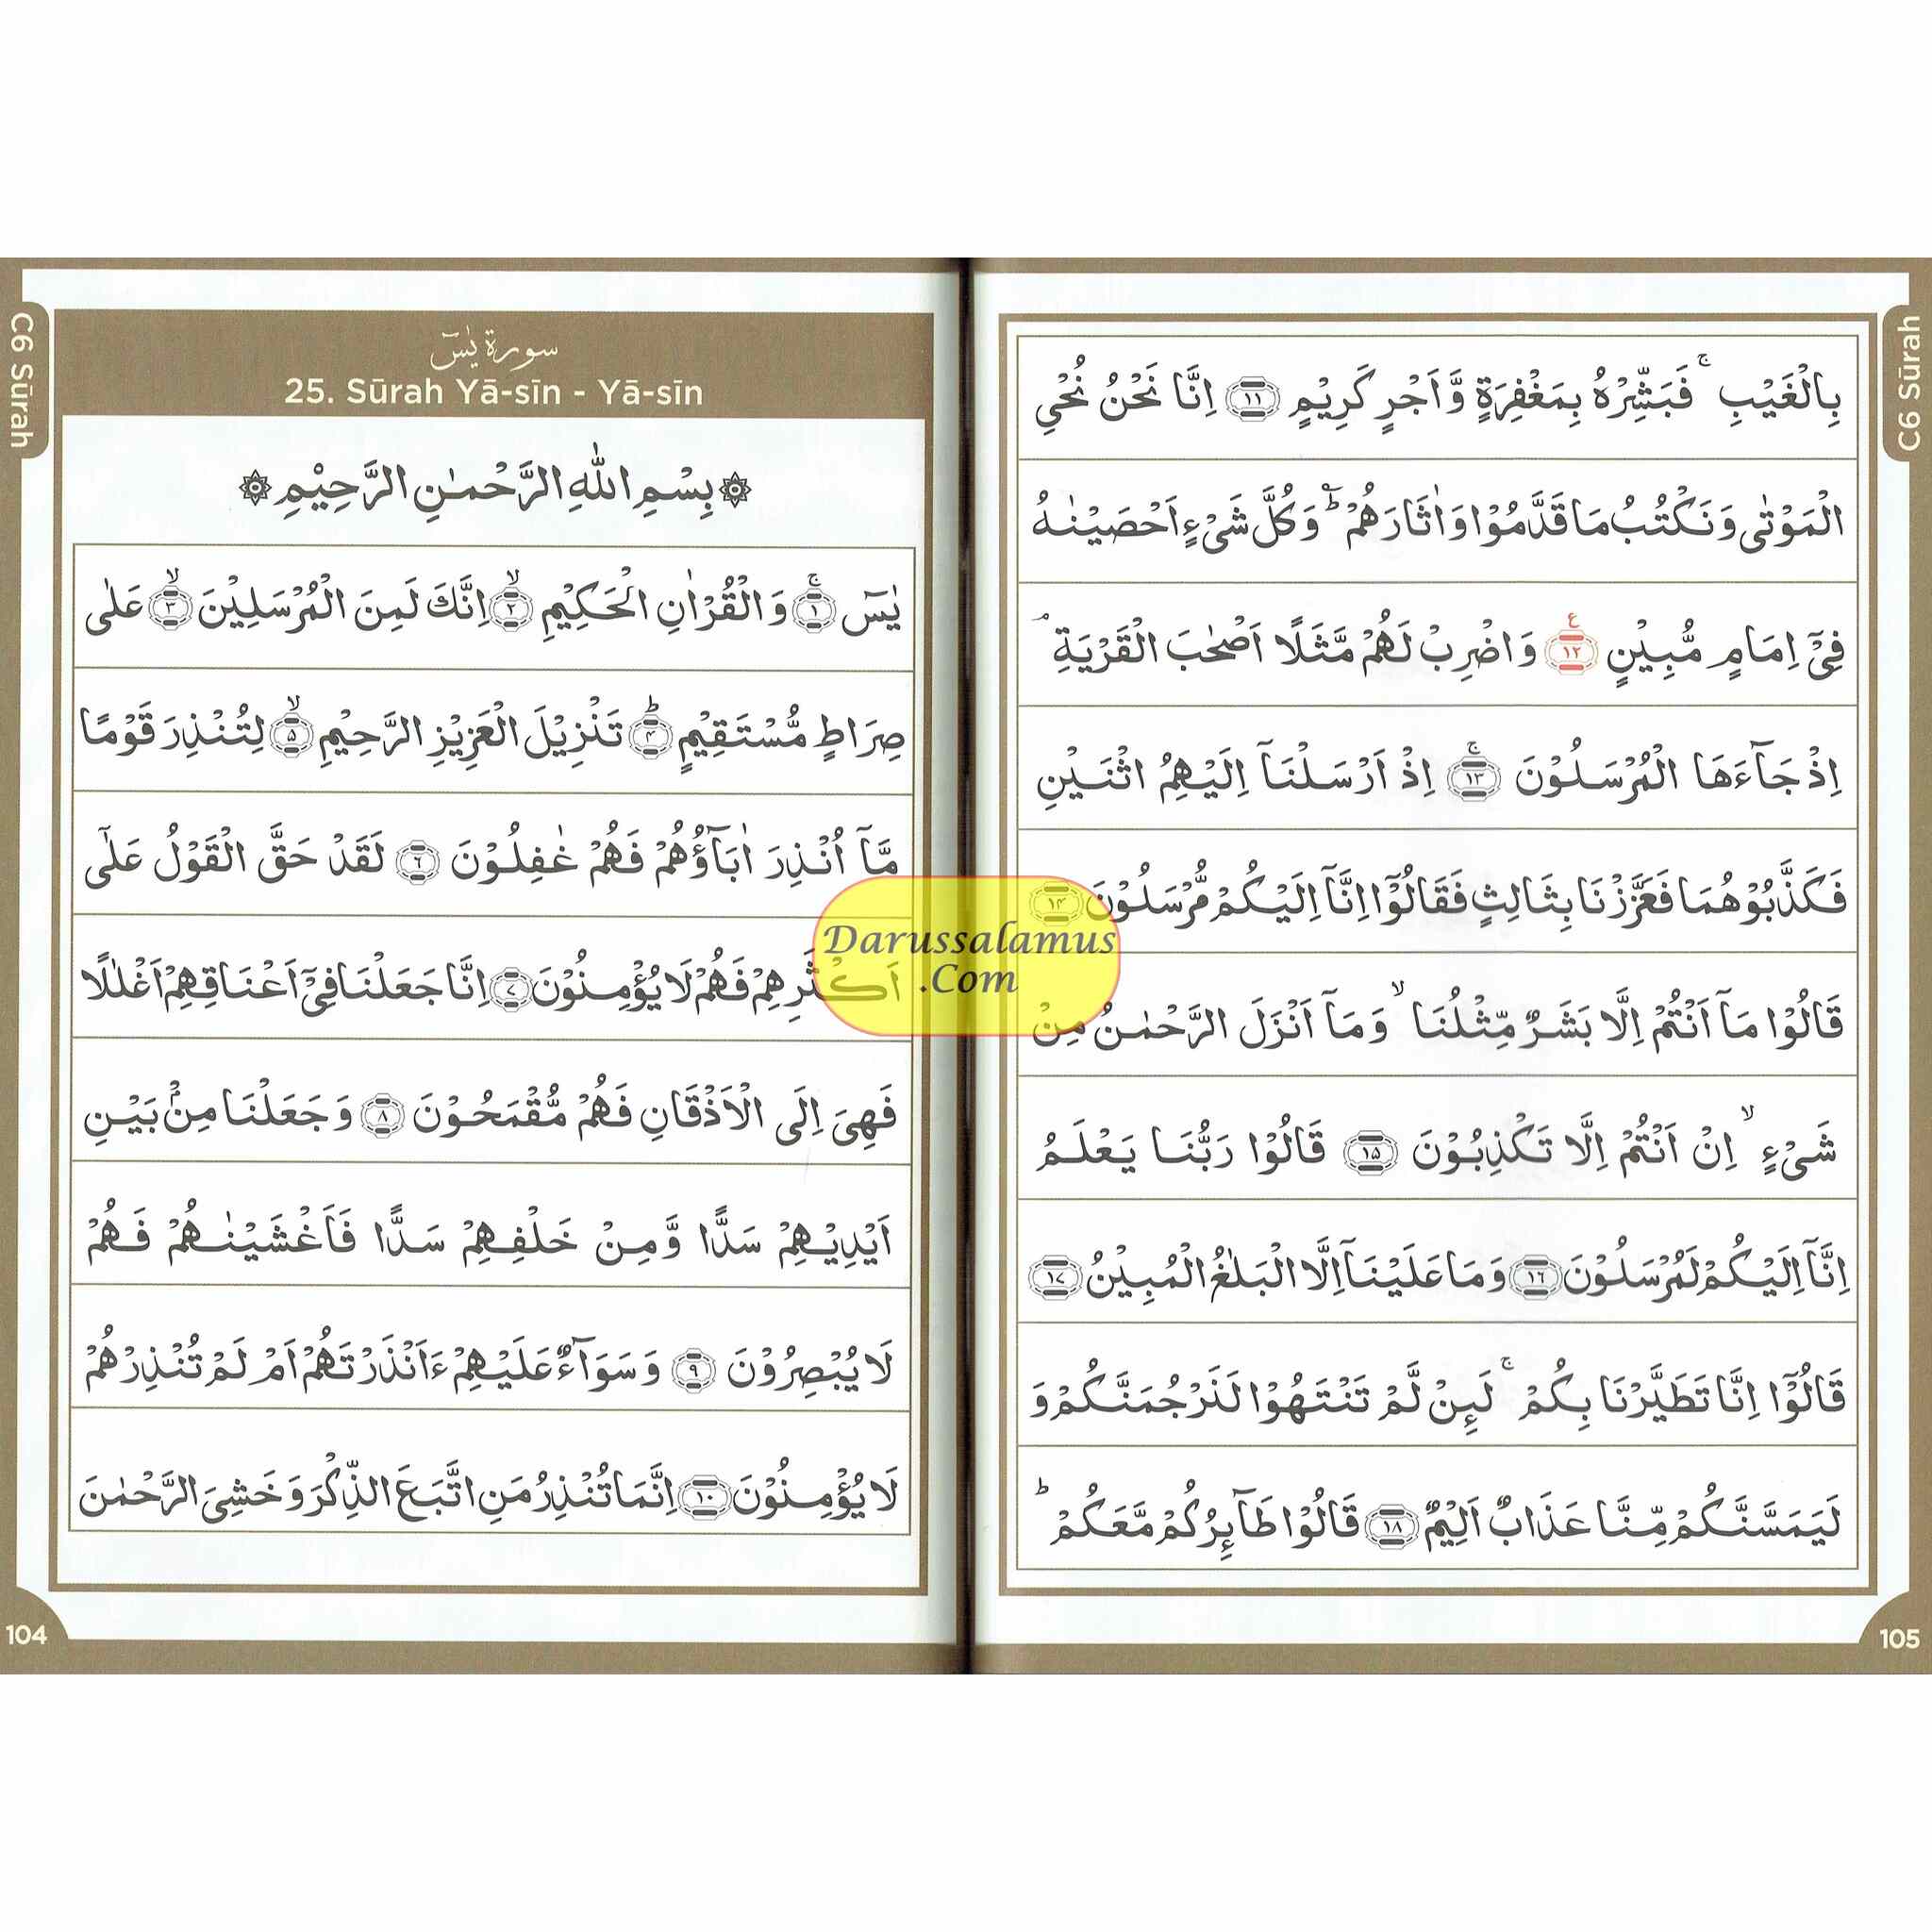 C6 Sūrah
سورة يٰسٓ
25. Sūrah Yā-sīn - Yā-sīn
بِسْمِ اللّٰهِ الرَّحْمٰنِ الرَّحِيْمِ
يٰسٓ ۚ﴿۱﴾ وَالْقُرْاٰنِ الْحَكِيْمِ ۙ﴿۲﴾ اِنَّكَ لَمِنَ الْمُرْسَلِيْنَ ۙ﴿۳﴾ عَلٰى
صِرَاطٍ مُّسْتَقِيْمٍ ؕ﴿۴﴾ تَنْزِيْلَ الْعَزِيْزِ الرَّحِيْمِ ۙ﴿۵﴾ لِتُنْذِرَ قَوْمًا
مَّاۤ اُنْذِرَ اٰبَآؤُهُمْ فَهُمْ غٰفِلُوْنَ ﴿۶﴾ لَقَدْ حَقَّ الْقَوْلُ عَلٰٓى
اَكْثَرِهِمْ فَهُمْ لَا يُؤْمِنُوْنَ ﴿۷﴾ اِنَّا جَعَلْنَا فِيْۤ اَعْنَاقِهِمْ اَغْلٰلًا
فَهِيَ اِلَى الْاَذْقَانِ فَهُمْ مُّقْمَحُوْنَ ﴿۸﴾ وَجَعَلْنَا مِنْۢ بَيْنِ
اَيْدِيْهِمْ سَدًّا وَّمِنْ خَلْفِهِمْ سَدًّا فَاَغْشَيْنٰهُمْ فَهُمْ
لَا يُبْصِرُوْنَ ﴿۹﴾ وَسَوَآءٌ عَلَيْهِمْ ءَاَنْذَرْتَهُمْ اَمْ لَمْ تُنْذِرْهُمْ
لَا يُؤْمِنُوْنَ ﴿۱۰﴾ اِنَّمَا تُنْذِرُ مَنِ اتَّبَعَ الذِّكْرَ وَخَشِيَ الرَّحْمٰنَ
104
C6 Sūrah
بِالْغَيْبِ ۚ فَبَشِّرْهُ بِمَغْفِرَةٍ وَّاَجْرٍ كَرِيْمٍ ﴿۱۱﴾ اِنَّا نَحْنُ نُحْيِ
الْمَوْتٰى وَنَكْتُبُ مَا قَدَّمُوْا وَاٰثَارَهُمْ ؕ وَكُلَّ شَيْءٍ اَحْصَيْنٰهُ
فِيْۤ اِمَامٍ مُّبِيْنٍ ﴿۱۲﴾ ع وَاضْرِبْ لَهُمْ مَّثَلًا اَصْحٰبَ الْقَرْيَةِ ۘ
اِذْ جَآءَهَا الْمُرْسَلُوْنَ ۚ﴿۱۳﴾ اِذْ اَرْسَلْنَاۤ اِلَيْهِمُ اثْنَيْنِ
فَكَذَّبُوْهُمَا فَعَزَّزْنَا بِثَالِثٍ فَقَالُوْۤا اِنَّاۤ اِلَيْكُمْ مُّرْسَلُوْنَ ﴿۱۴﴾
قَالُوْا مَاۤ اَنْتُمْ اِلَّا بَشَرٌ مِّثْلُنَا ۙ وَمَاۤ اَنْزَلَ الرَّحْمٰنُ مِنْ
شَيْءٍ ۙ اِنْ اَنْتُمْ اِلَّا تَكْذِبُوْنَ ﴿۱۵﴾ قَالُوْا رَبُّنَا يَعْلَمُ
اِنَّاۤ اِلَيْكُمْ لَمُرْسَلُوْنَ ﴿۱۶﴾ وَمَا عَلَيْنَاۤ اِلَّا الْبَلٰغُ الْمُبِيْنُ ﴿۱۷﴾
قَالُوْۤا اِنَّا تَطَيَّرْنَا بِكُمْ ۚ لَئِنْ لَّمْ تَنْتَهُوْا لَنَرْجُمَنَّكُمْ وَ
لَيَمَسَّنَّكُمْ مِّنَّا عَذَابٌ اَلِيْمٌ ﴿۱۸﴾ قَالُوْا طَآئِرُكُمْ مَّعَكُمْ ؕ
105
Darussalamus
.Com